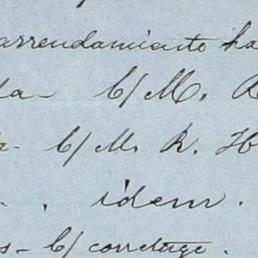 arrendamiento ha
da - C/ M. R
a - C/ M. R. H
. . idem .
s - C/ corretage .